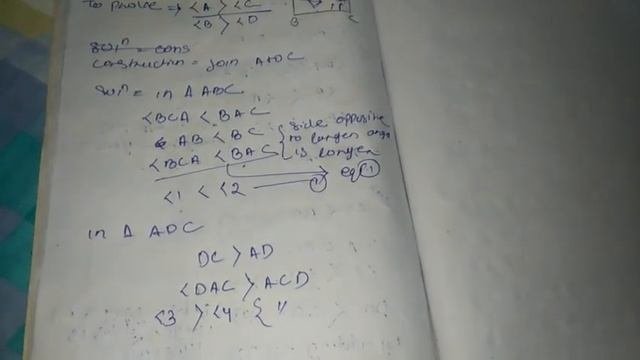 To prove ⇒ <A > <C
<B > <D
B C
Solⁿ = cons
Construction = Join A to C
Solⁿ = in Δ ABC
<BCA < BAC
AB < BC { side opposite
<BCA < BAC to longer angle
is longer
eq (1)
<1 < <2 — (1)
in Δ ADC
DC > AD
<DAC > ACD
<3 > <4 { "